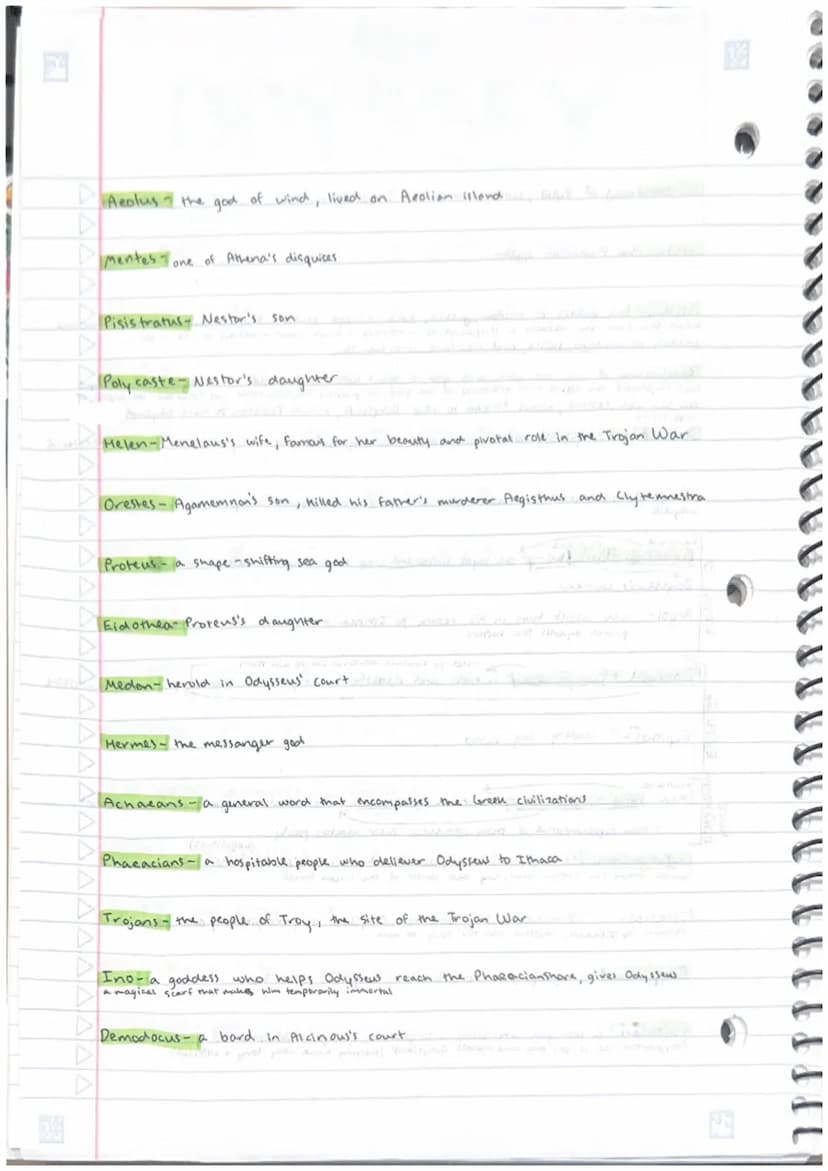 Aeolus- the god of wind, lived on Aeolian island
Mentes- one of Athena's disquices
Pisistratus- Nestor's son
Polycaste- Nestor's daughter
Helen- Menelaus's wife, famous for her beauty and pivotal role in the Trojan War
Orestes- Agamemnon's son, killed his father's murderer Aegisthus and Clytemnestra
Proteus- a shape-shifting sea god
Eidothea- Proteus's daughter
Medon- herald in Odysseus' court
Hermes- the messanger god
Achaeans- a general word that encompasses the Greek civilizations
Phaeacians- a hospitable people who deliever Odysseus to Ithaca
Trojans- the people of Troy, the site of the Trojan War
Ino- a goddess who helps Odysseus reach the Phaeacianshore, gives Odysseus
a magical scarf that makes him temporarily immortal
Demodocus- a bard in Alcinous's court